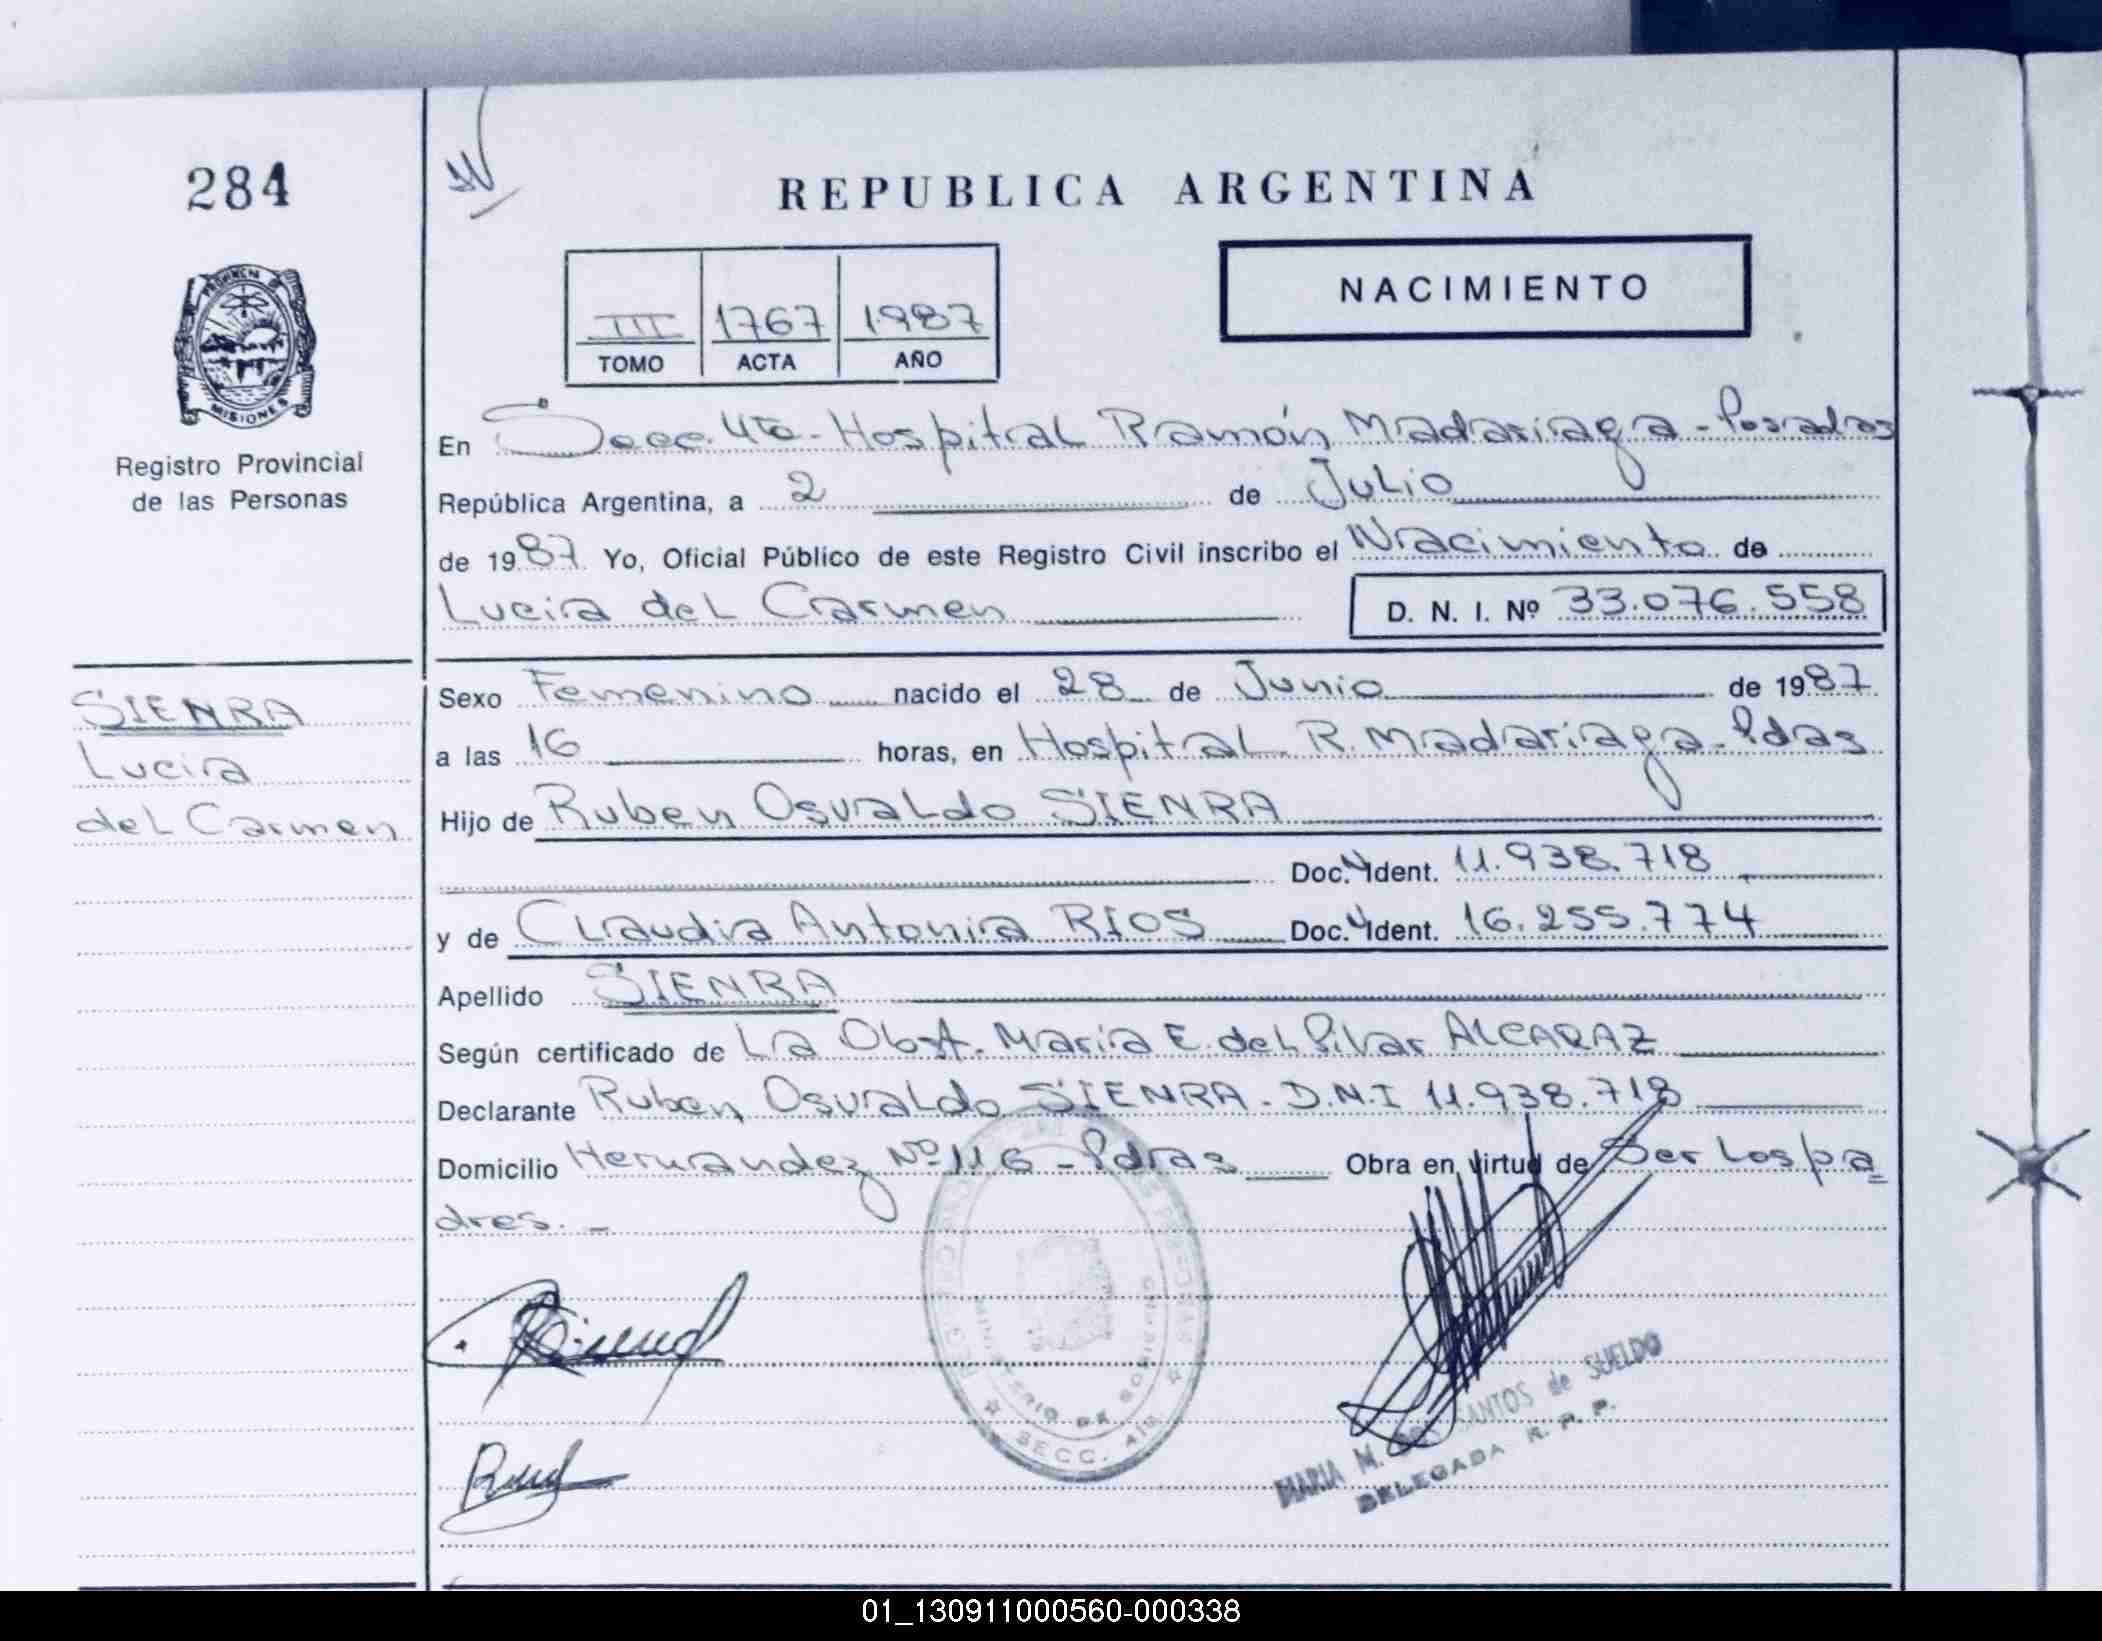 284
REPUBLICA ARGENTINA
NACIMIENTO
III 1767 1987
TOMO ACTA AÑO
PROVINCIA DE
MISIONES
Registro Provincial
de las Personas
En Secc. 4ta - Hospital Ramón Madariaga - Posadas
República Argentina, a 2 de Julio
de 1987 Yo, Oficial Público de este Registro Civil inscribo el Nacimiento de
Lucia del Carmen D. N. I. Nº 33.076.558
SIENRA
Lucia
del Carmen
Sexo Femenino nacido el 28 de Junio de 1987
a las 16 horas, en Hospital R. Madariaga - Pdas
Hijo de Ruben Osvaldo SIENRA
Doc. Ident. 11.938.718
y de Claudia Antonia RIOS Doc. Ident. 16.255.774
Apellido SIENRA
Según certificado de La Obst. María E. del Pilar ALCARAZ
Declarante Ruben Osvaldo SIENRA - D.N.I 11.938.718
Domicilio Hernandez Nº 116 - Pdas Obra en virtud de Ser Los pa
dres. -
MINISTERIO DE GOBIERNO
SECC. 4ta
MARIA M. SANTOS de SUELDO
DELEGADA R. P. P.
01_130911000560-000338